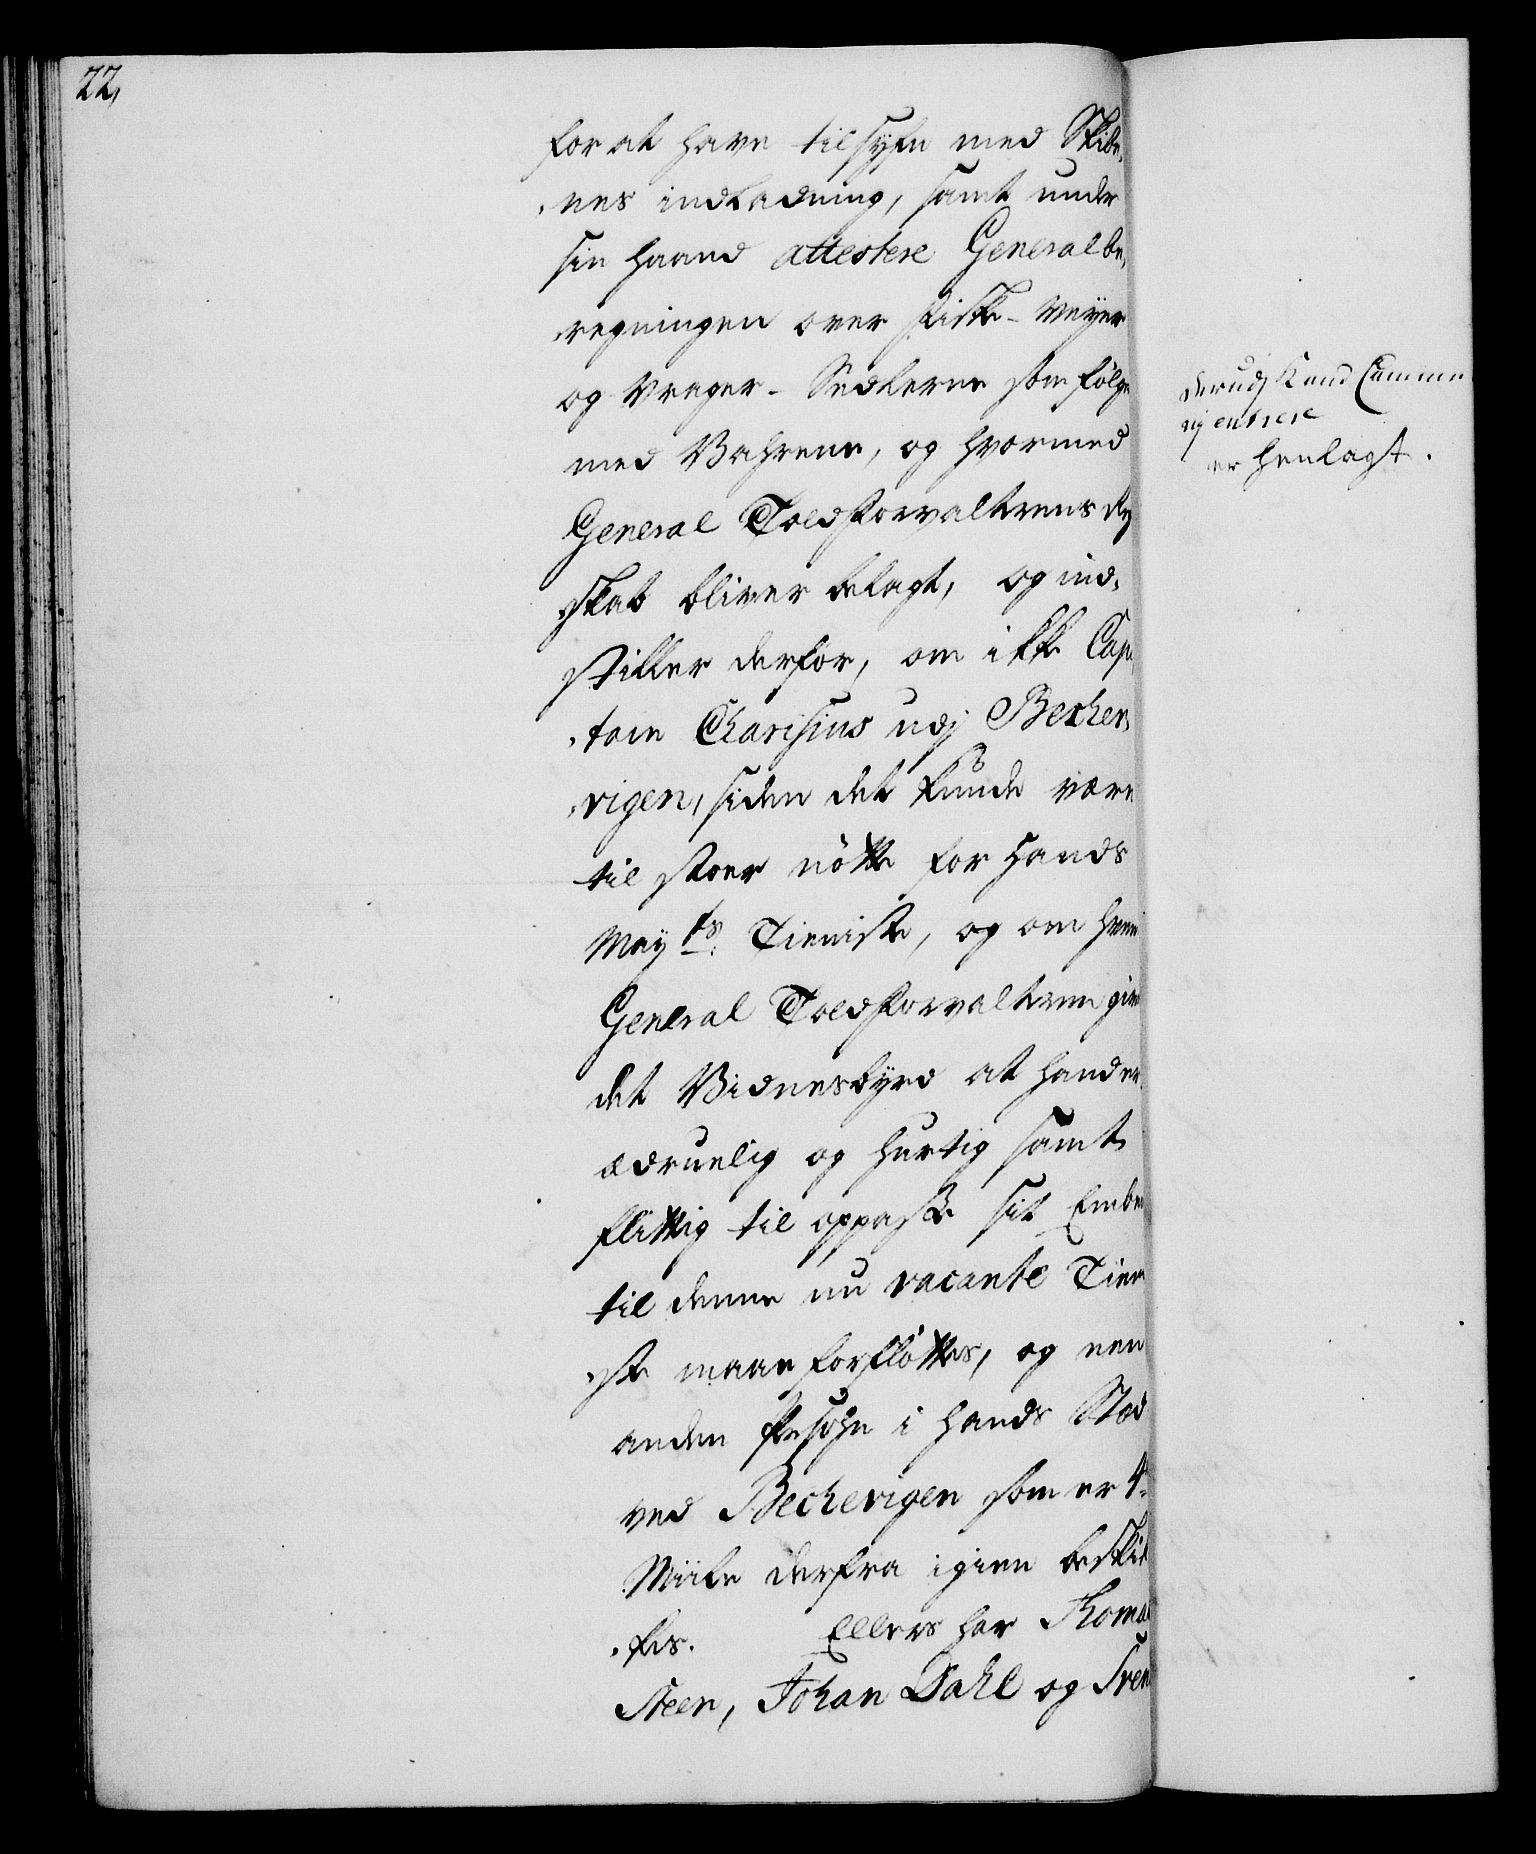 22,
for at have tilsyfn med Skibe,
,nes indladning, samt under
sin haand attestere Generalbe,
,regningen over Fiske-Veyer
og Vrager-Sedlerne som følge
med Vahrene, og hvormed
General Toldforvalterens Reg
,skab bliver belagt, og ind,
stiller derfor, om ikke Cap,
,tain Charisius udj Becher,
,vigen, siden det kunde være
til stoer nötte for Hands
Mayts: Tieniste, og om hvem
General Toldforvalteren giver
det Vidnesbyrd at hand er
ædruelig og hurtig samt
flittig til oppasse sit Embe
til denne nu vacante Tien
,ste maae forflöttes, og een
anden Persohn i hands Stæd
ved Bechervigen som er 4
Miile derfra igien beskik
,kes. Ellers har Thomas
Steen, Johan Dahl og Sven
derudj
er henlagt.